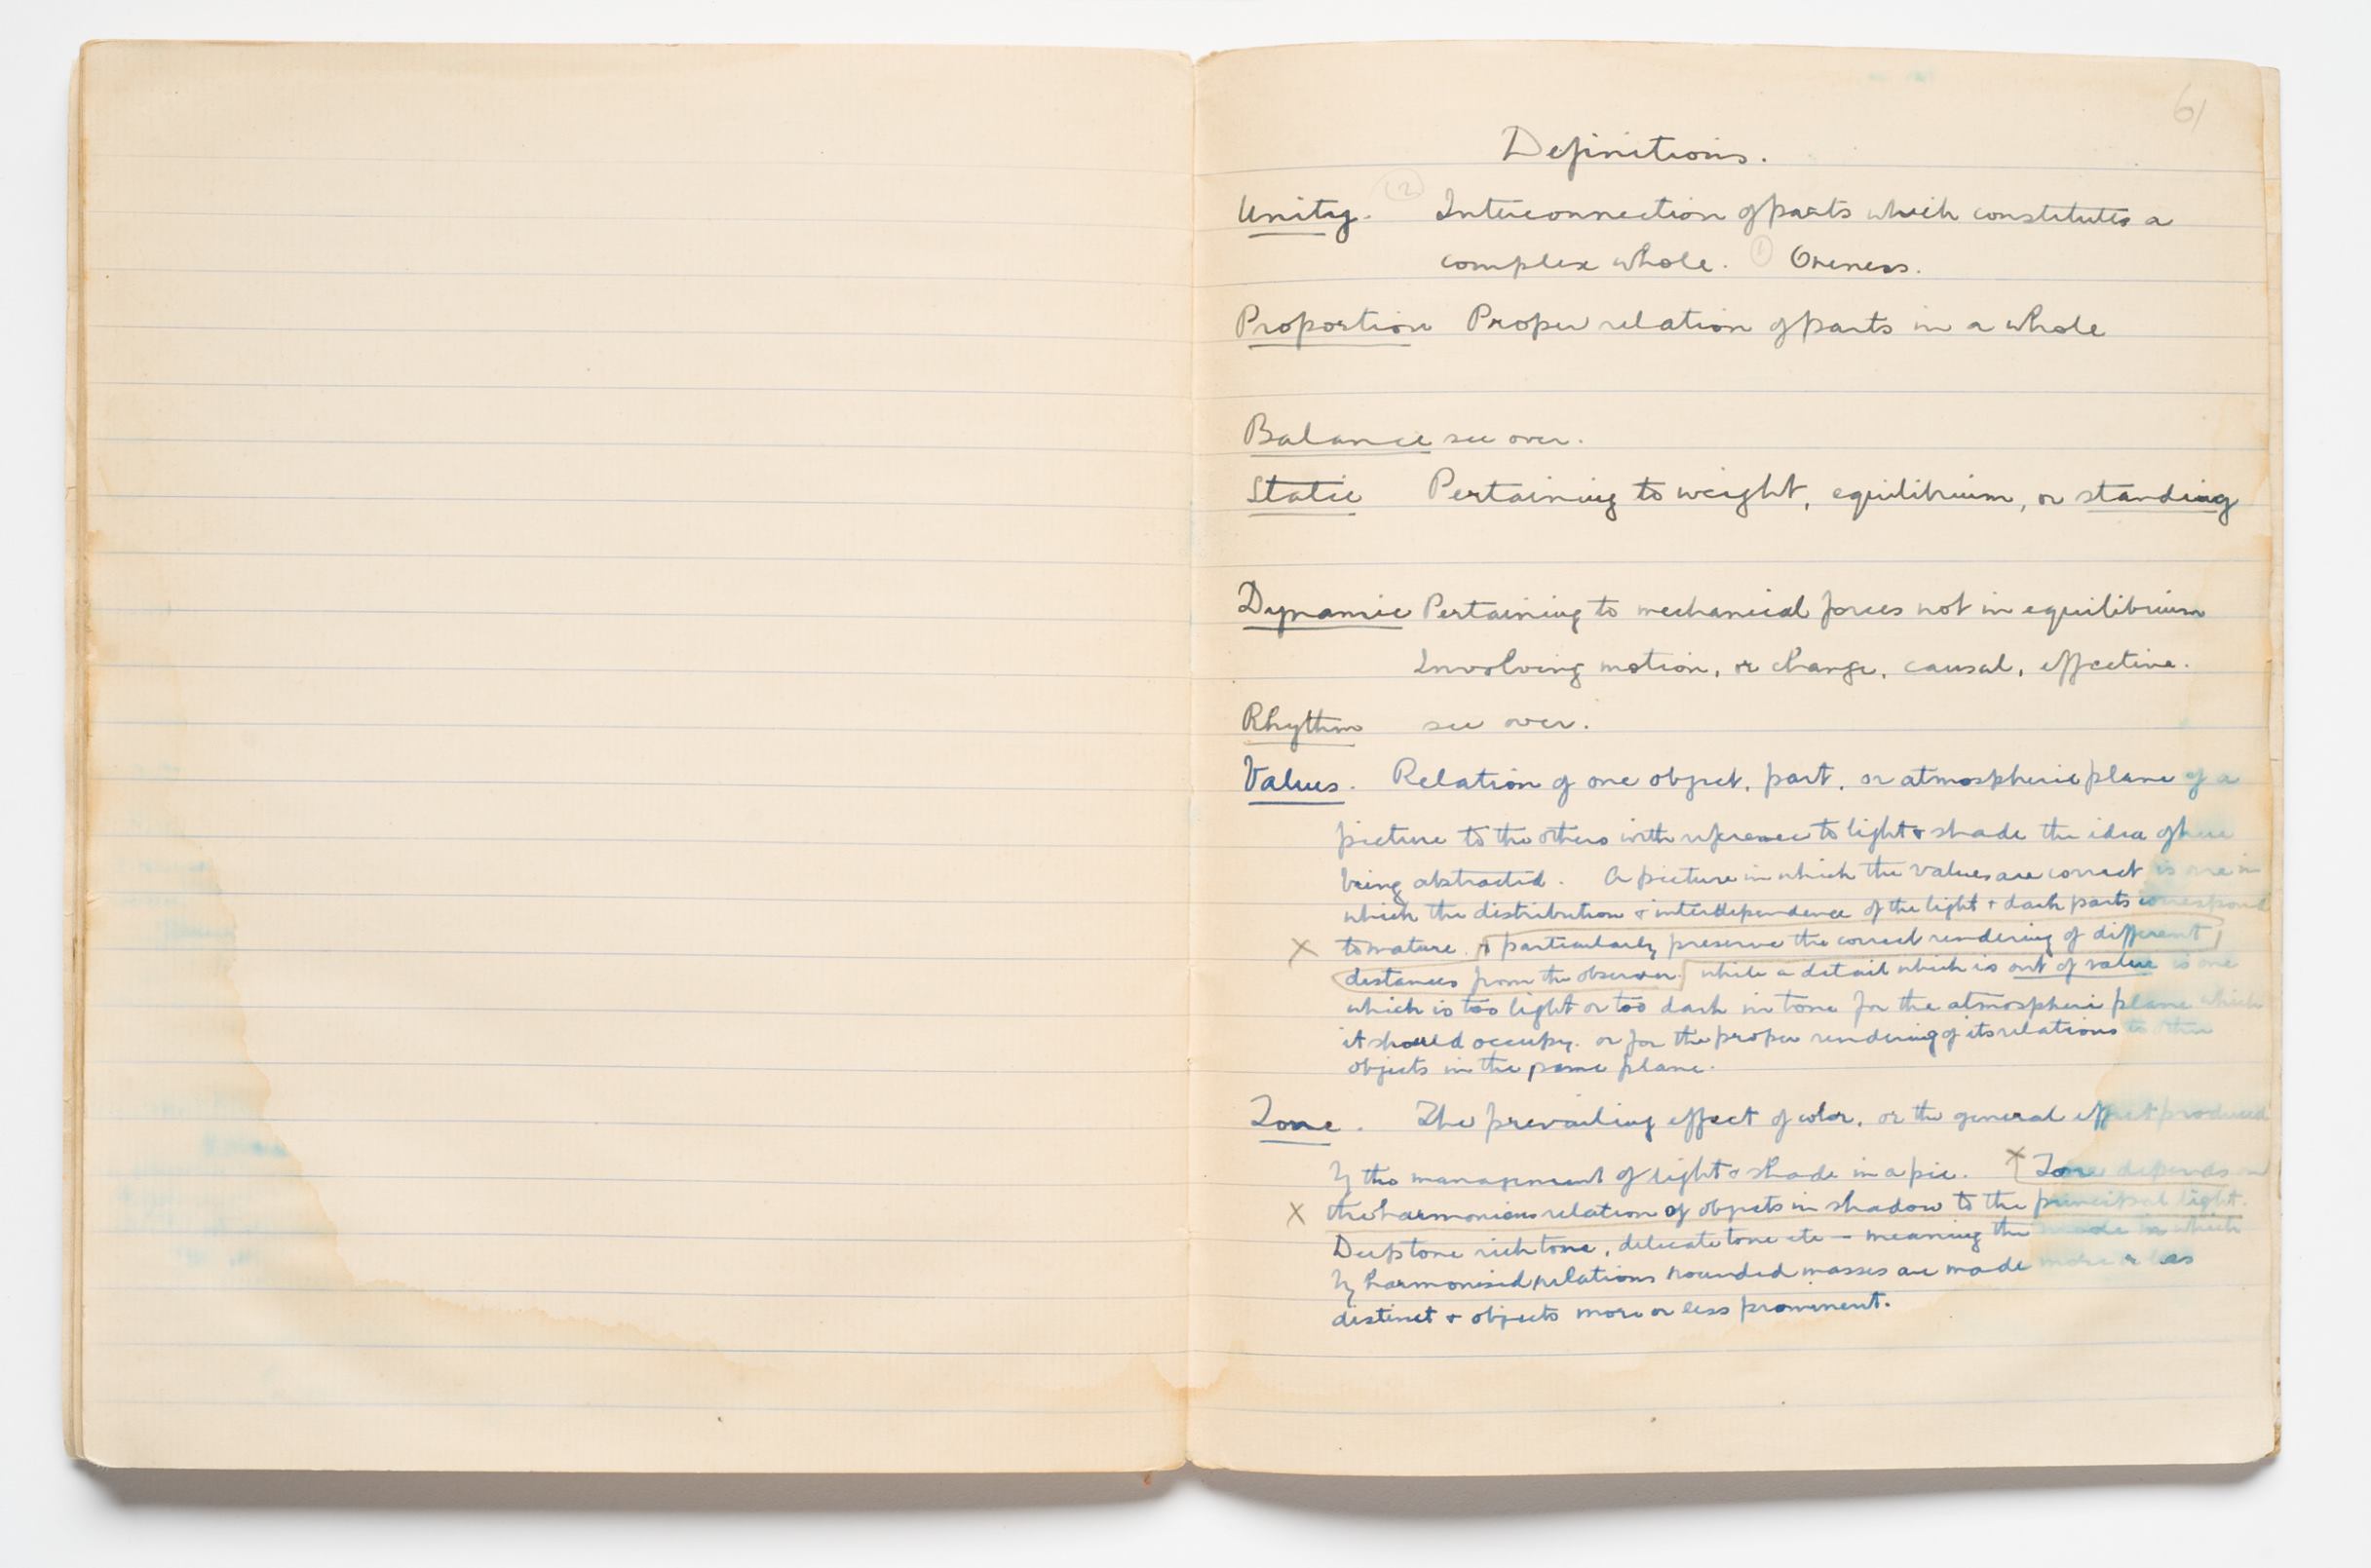 61
Definitions.
Unity. (2) Interconnection of parts which constitutes a
complex whole. (1) Oneness.
Proportion Proper relation of parts in a whole
Balance see over.
Static Pertaining to weight, equilibrium, or standing
Dynamic Pertaining to mechanical forces not in equilibrium
Involving motion, or change, causal, effective.
Rhythm see over.
Values. Relation of one object, part, or atmospheric plane of a
picture to the others with reference to light & shade the idea of hue
being abstracted. A picture in which the values are correct is one in
which the distribution & interdependence of the light & dark parts correspond
X to nature. & particularly preserve the correct rendering of different
distances from the observer while a detail which is out of value is one
which is too light or too dark in tone for the atmospheri plane which
it should occupy. or for the proper rendering of its relations to other
objects in the same plane.
Tone. The prevailing effect of color, or the general effect produced
by the management of light & shade in a pic. X Tone depends on
X the harmonious relation of objects in shadow to the principal light.
Deep tone rich tone, delicate tone etc — meaning the mode in which
by harmonised relations rounded masses are made more or less
distinct & objects more or less prominent.